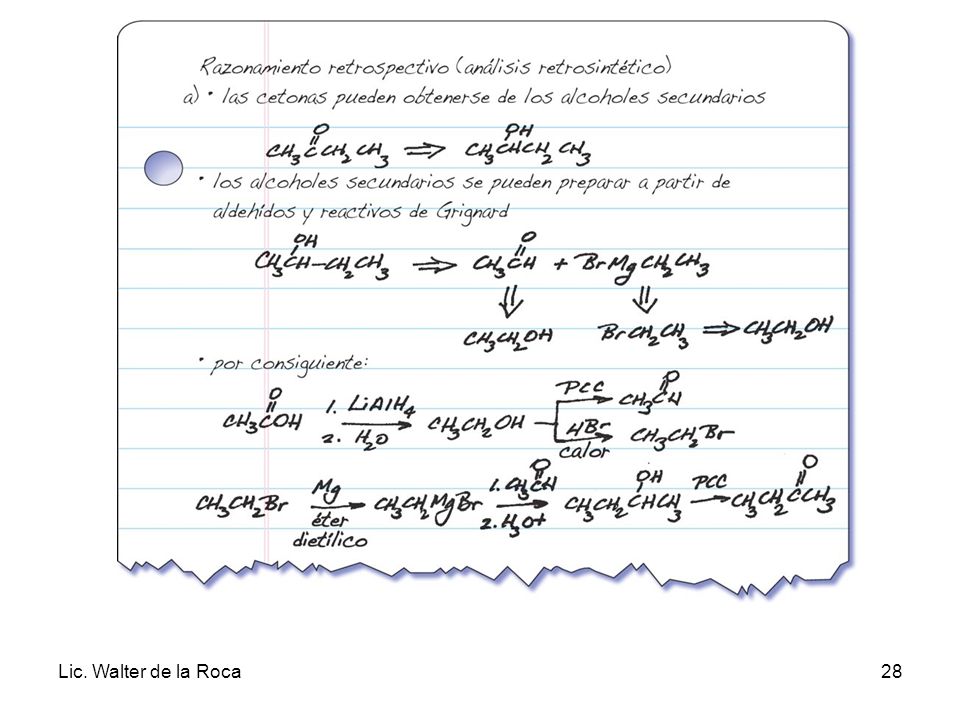 Razonamiento retrospectivo (análisis retrosintético)
a) • las cetonas pueden obtenerse de los alcoholes secundarios
O OH
CH3CCH2CH3 ⇒ CH3CHCH2CH3
• los alcoholes secundarios se pueden preparar a partir de
aldehídos y reactivos de Grignard
OH O
CH3CH-CH2CH3 ⇒ CH3CH + BrMgCH2CH3
⇓ ⇓
CH3CH2OH BrCH2CH3 ⇒ CH3CH2OH
• por consiguiente:
O PCC O
CH3COH 1. LiAlH4 CH3CH2OH CH3CH
2. H2O HBr CH3CH2Br
calor
O OH O
CH3CH2Br Mg CH3CH2MgBr 1. CH3CH CH3CH2CHCH3 PCC CH3CH2CCH3
éter 2. H3O+
dietílico
Lic. Walter de la Roca 28